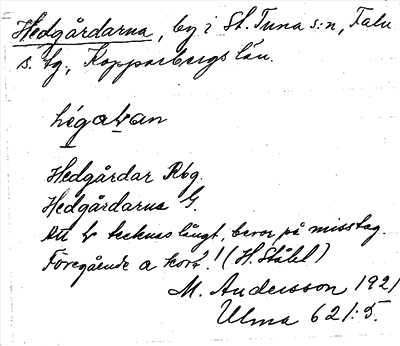 Hedgårdarna, by i St. Tuna s:n, Falu
s. tg, Kopparbergs län.
hégaƚan
Hedgårdar Rbg.
Hedgårdarna G.
Att ƚ tecknas långt, beror på misstag.
Föregående a kort! (H. Ståhl)
M. Andersson 1921
Ulma 621:5.